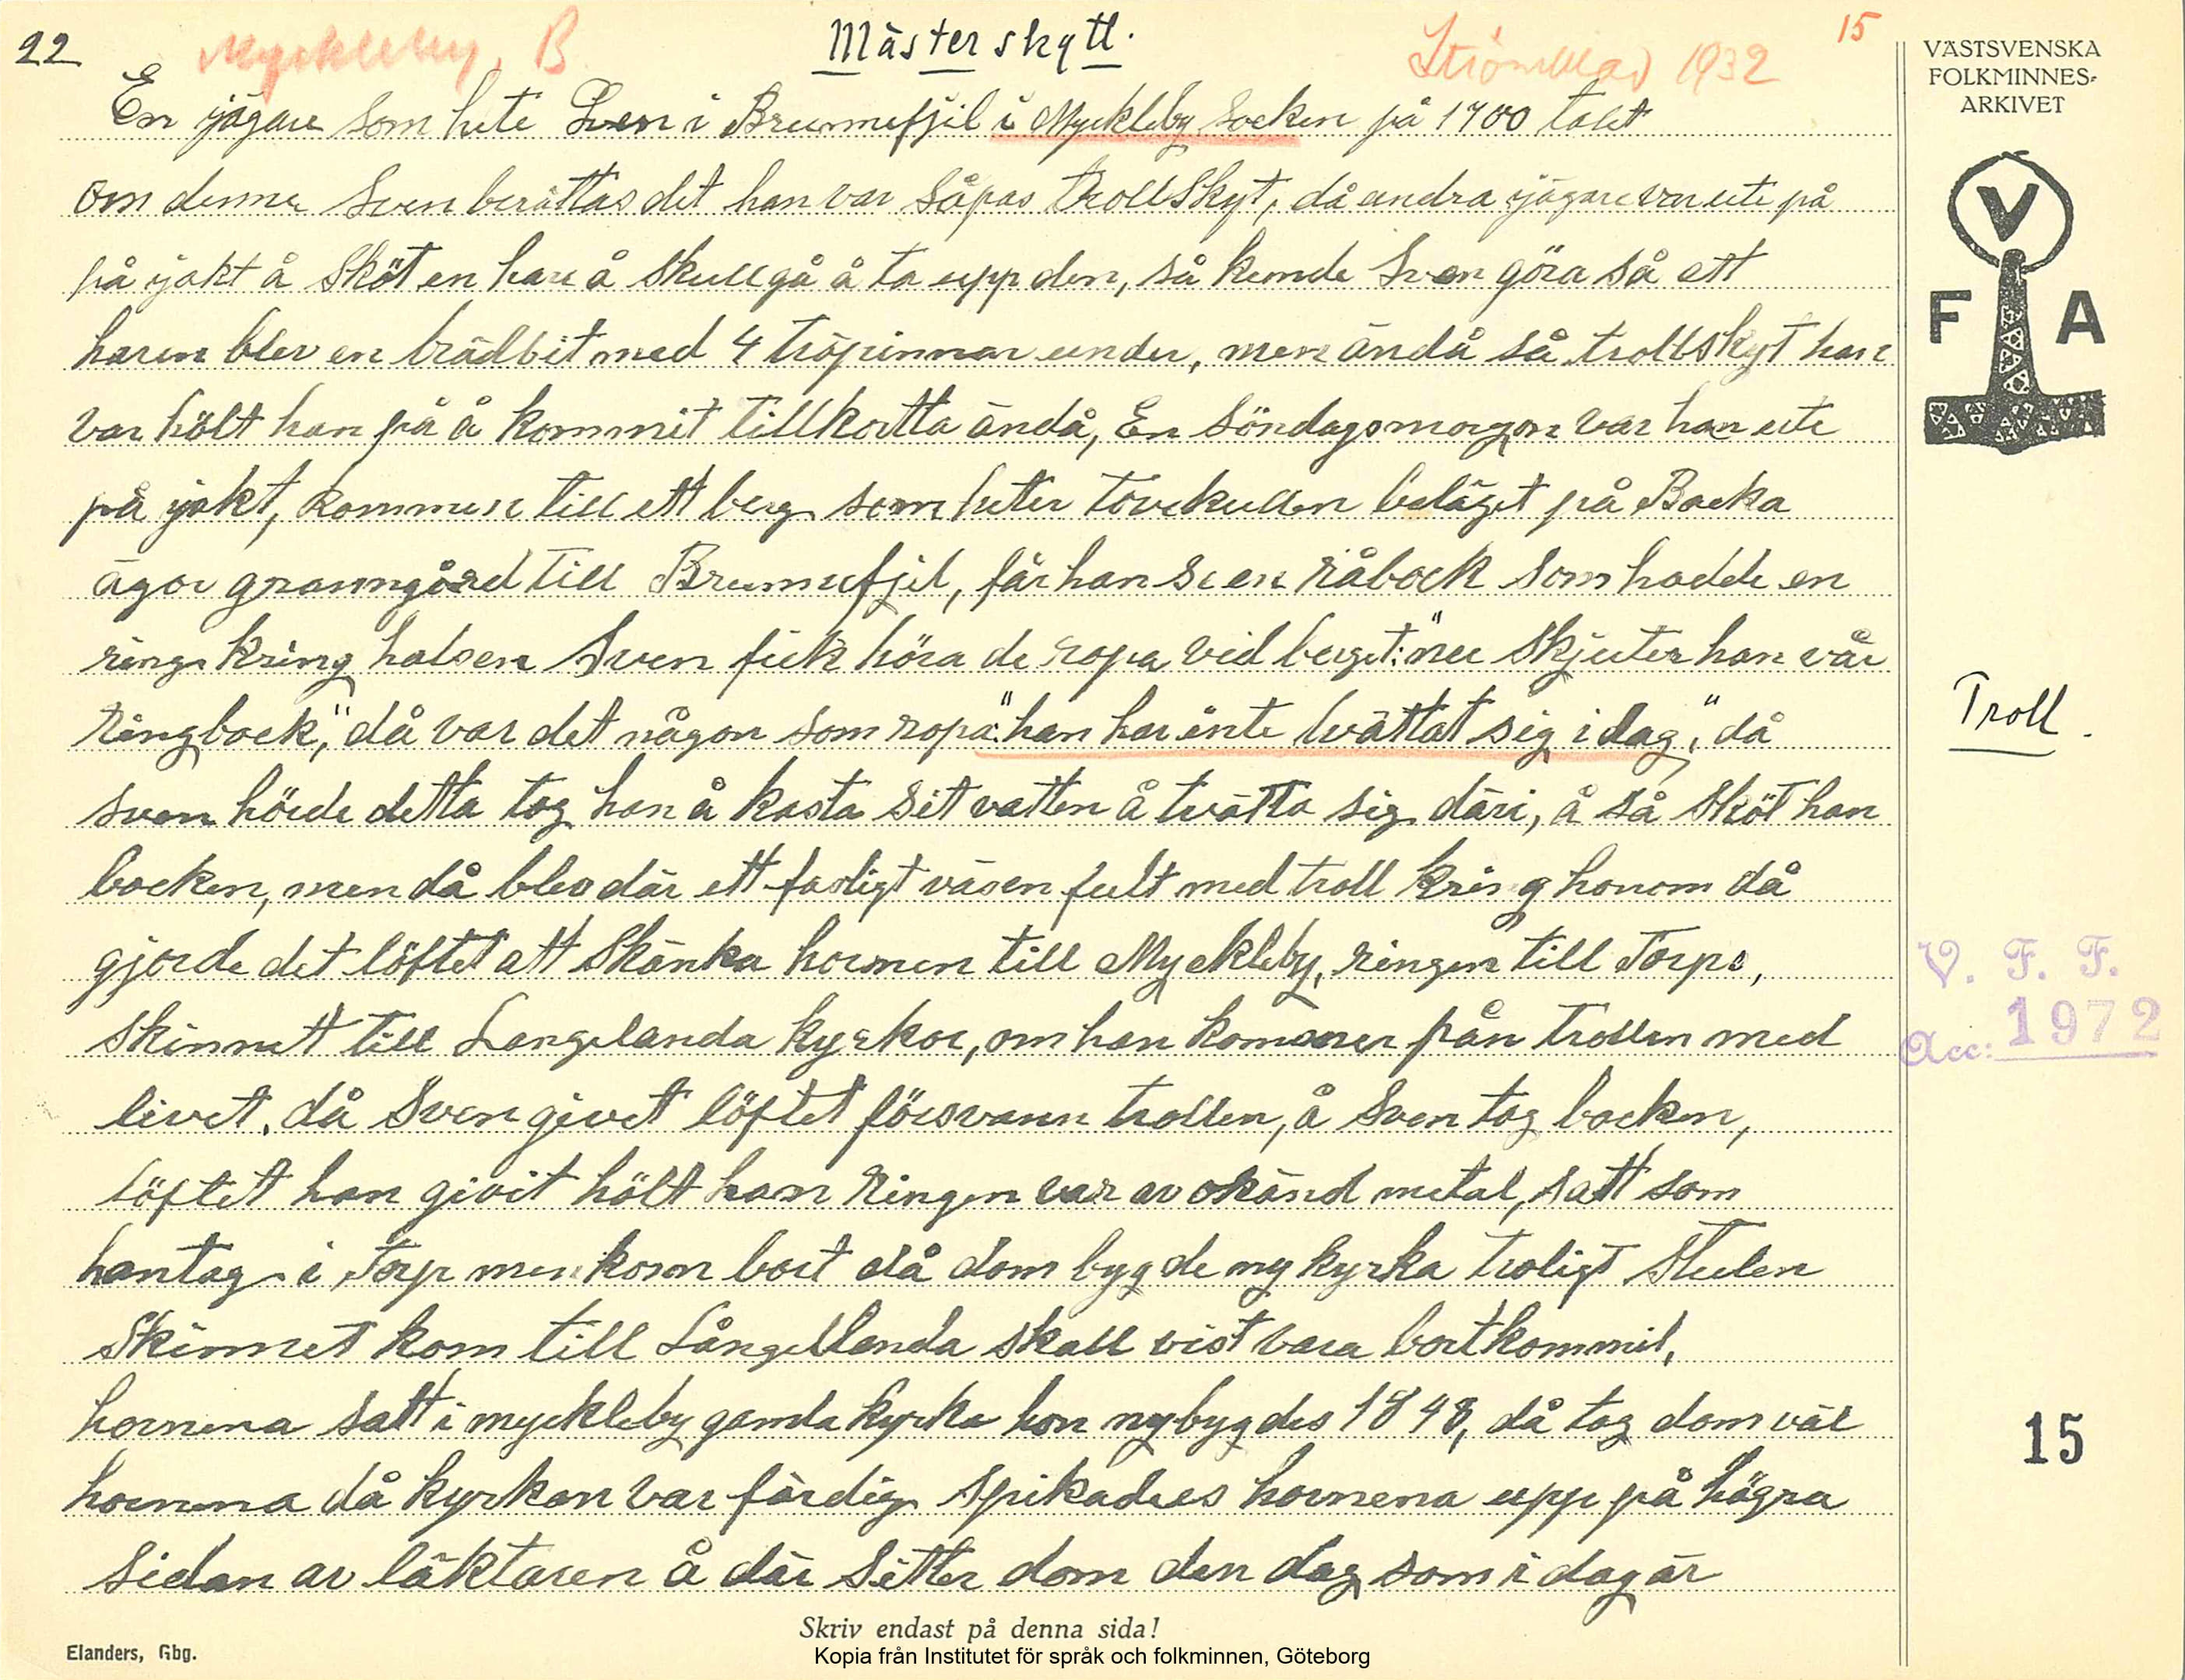 22
Myckleby, B
Mästerskytt.
Strömblad 1932
15
En jägare som hete Sven i Brunnefjil i Myckleby Socken på 1700 talet
om denne Sven berättas det han var såpas trollskyt, då andra jägare var ute på
på jakt å sköt en hare å skull gå å ta upp den, så kunde Sven göra så att
haren blev en brädbit med 4 träpinnar under, men ändå så trollskyt han
var hölt han på å kommit tillkortta ändå, En Söndagsmorgon var han ute
på jakt, kommer till ett berg som heter Tovekullen beläget på Backa
ägor granngård till Brunnefjil, får han se en råbock som hadde en
ring kring halsen Sven fick höra de ropa vid berget: "nu skjuter han vår
Ringbock," då var det någon som ropa: "han har inte tvättat sig i dag," då
Sven hörde detta tog han å kasta sit vatten å tvätta sig däri, å så sköt han
bocken, men då blev där ett fasligt väsen fult med troll kring honom då
gjorde det löftet att skänka hornen till Myckleby, ringen till Torps,
Skinnet till Langelanda kyrkor, om han kommer från trollen med
livet. då Sven givet löftet försvann trollen, å Sven tog bocken,
löftet han givit hölt han Ringen var av okänd metal, satt som
hantag i Torp men kom bort då dom bygde ny kyrka troligt stulen
Skinnet kom till Långellanda skall vist vara bortkommit,
hornena satt i myckleby gamla kyrka hon nybygdes 1848, då tog dom väl
hornena då kyrkan var färdig spikades hornena upp på högra
sidan av läktaren å där sitter dom den dag som i dag är
Skriv endast på denna sida!
Elanders, Gbg.
Kopia från Institutet för språk och folkminnen, Göteborg
VÄSTSVENSKA
FOLKMINNES-
ARKIVET
V
F A
Troll.
V. F. F.
Acc: 1972
15